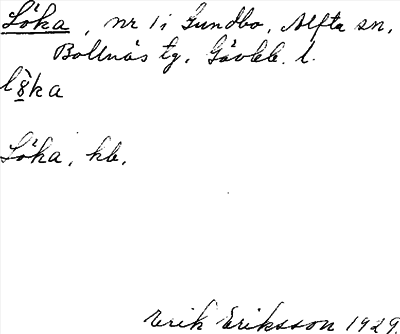 Löka, nr 1 i Gundbo, Alfta sn,
Bollnäs tg, Gävleb. l.
l8̀ka
Löka, kb.
Erik Eriksson 1929.